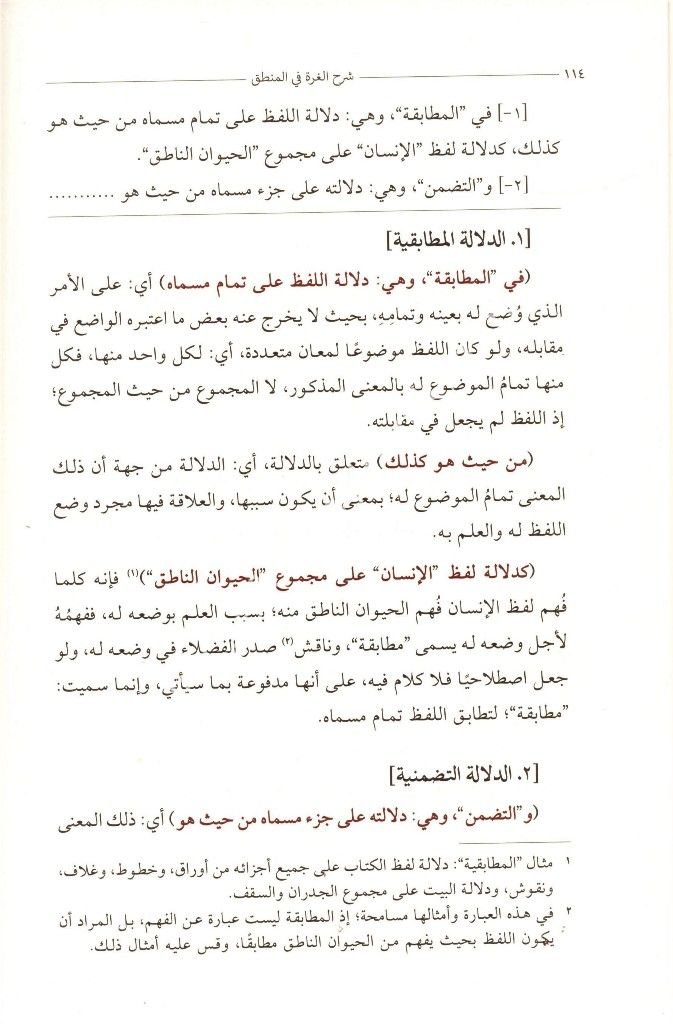 ١١٤ شرح الغرة في المنطق
[١-] في "المطابقة"، وهي: دلالة اللفظ على تمام مسماه من حيث هو
كذلك، كدلالة لفظ "الإنسان" على مجموع "الحيوان الناطق".
[٢-] و"التضمن"، وهي: دلالته على جزء مسماه من حيث هو ...........
[١. الدلالة المطابقية]
(في "المطابقة"، وهي: دلالة اللفظ على تمام مسماه) أي: على الأمر
الذي وُضع له بعينه وتمامِهِ، بحيث لا يخرج عنه بعض ما اعتبره الواضع في
مقابله، ولو كان اللفظ موضوعًا لمعان متعددة، أي: لكل واحد منها، فكل
منها تمامُ الموضوع له بالمعنى المذكور، لا المجموع من حيث المجموع؛
إذ اللفظ لم يجعل في مقابلته.
(من حيث هو كذلك) متعلق بالدلالة، أي: الدلالة من جهة أن ذلك
المعنى تمامُ الموضوع له؛ بمعنى أن يكون سببها، والعلاقة فيها مجرد وضع
اللفظ له والعلم به.
(كدلالة لفظ "الإنسان" على مجموع "الحيوان الناطق")(١) فإنه كلما
فُهم لفظ الإنسان فُهم الحيوان الناطق منه؛ بسبب العلم بوضعه له، ففهمُهُ
لأجل وضعه له يسمى "مطابقة"، وناقش(٢) صدر الفضلاء في وضعه له، ولو
جعل اصطلاحيًا فلا كلام فيه، على أنها مدفوعة بما سيأتي، وإنما سميت:
"مطابقة"؛ لتطابق اللفظ تمام مسماه.
[٢. الدلالة التضمنية]
(و"التضمن"، وهي: دلالته على جزء مسماه من حيث هو) أي: ذلك المعنى
١ مثال "المطابقية": دلالة لفظ الكتاب على جميع أجزائه من أوراق، وخطوط، وغلاف،
ونقوش، ودلالة البيت على مجموع الجدران والسقف.
٢ في هذه العبارة وأمثالها مسامحة؛ إذ المطابقة ليست عبارة عن الفهم، بل المراد أن
يكون اللفظ بحيث يفهم من الحيوان الناطق مطابقًا، وقس عليه أمثال ذلك.